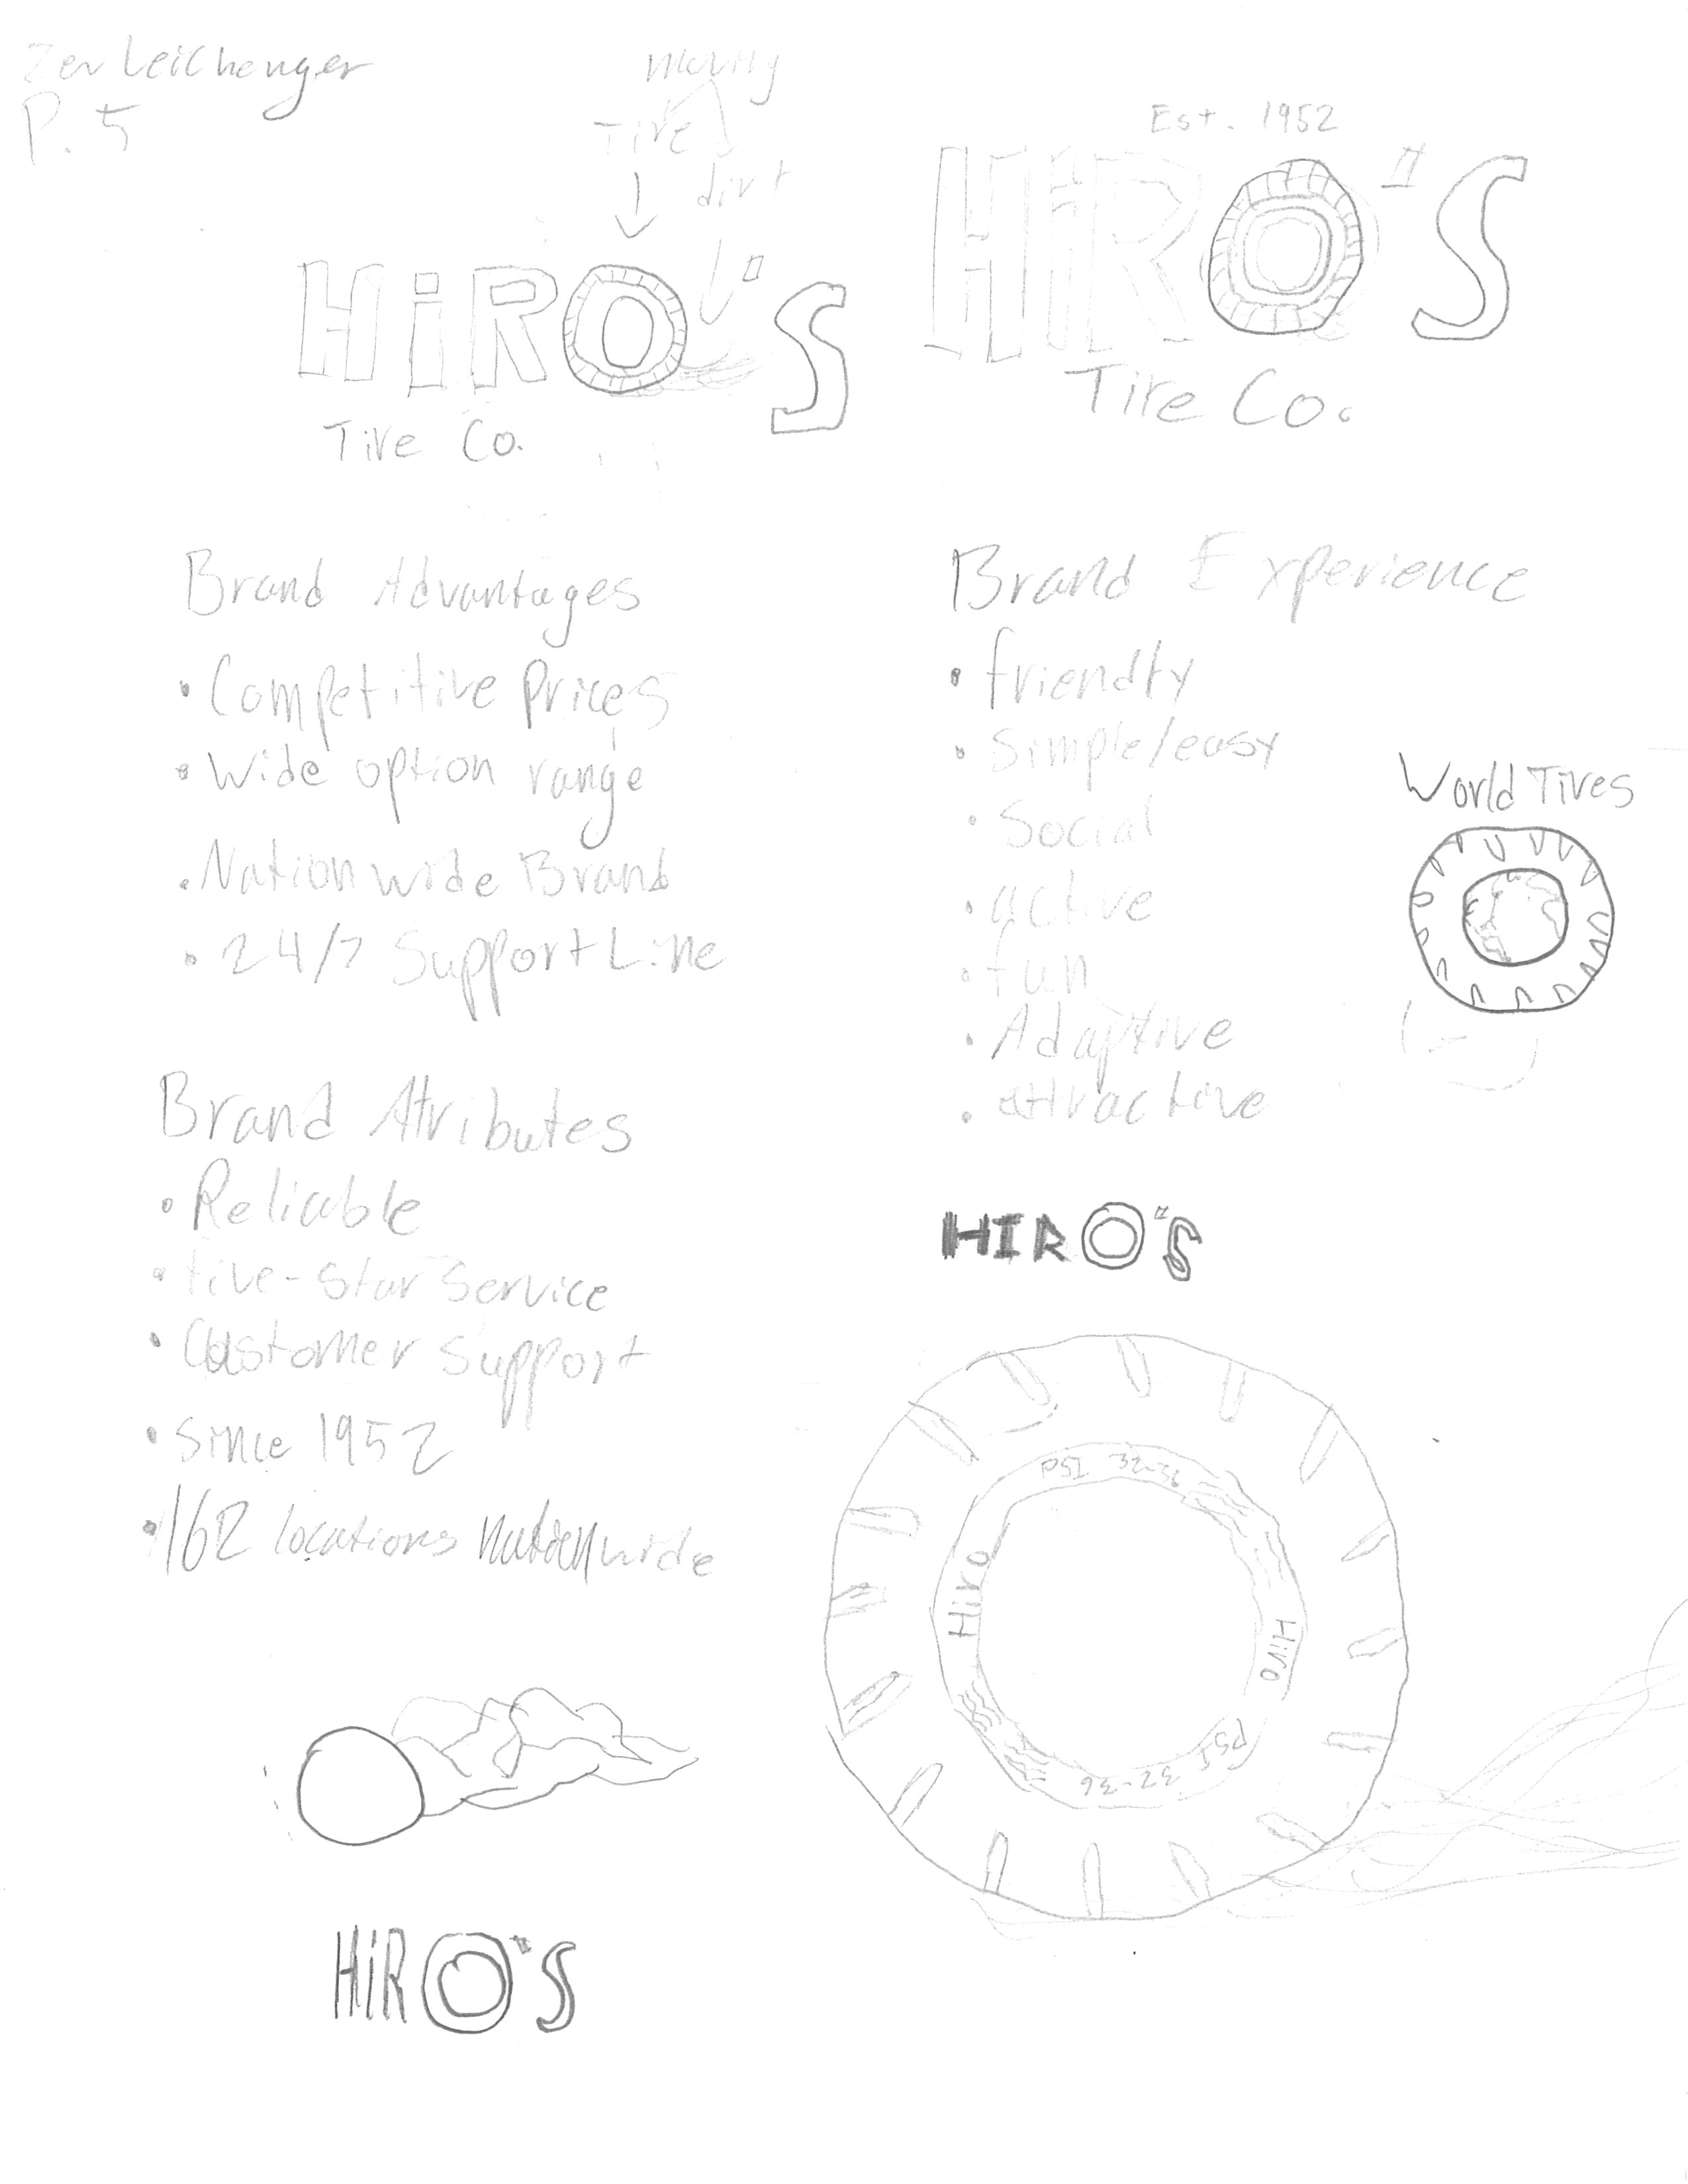 Zev Leichenger
P. 5
Tire
dirt
HiRO's
Tire Co.
Est. 1952
HiRO's
Tire Co.
Brand Advantages
• Competitive prices
• Wide option range
• Nationwide Brand
• 24/7 Support Line
Brand Atributes
• Reliable
• five-star service
• Customer support
• Since 1952
• 162 locations nationwide
Brand Experience
• friendly
• Simple/easy
• Social
• active
• fun
• Adaptive
• attractive
World Tires
HIRO's
PSI 32-36
Hiro
Hiro
PSI 32-36
HiRO's